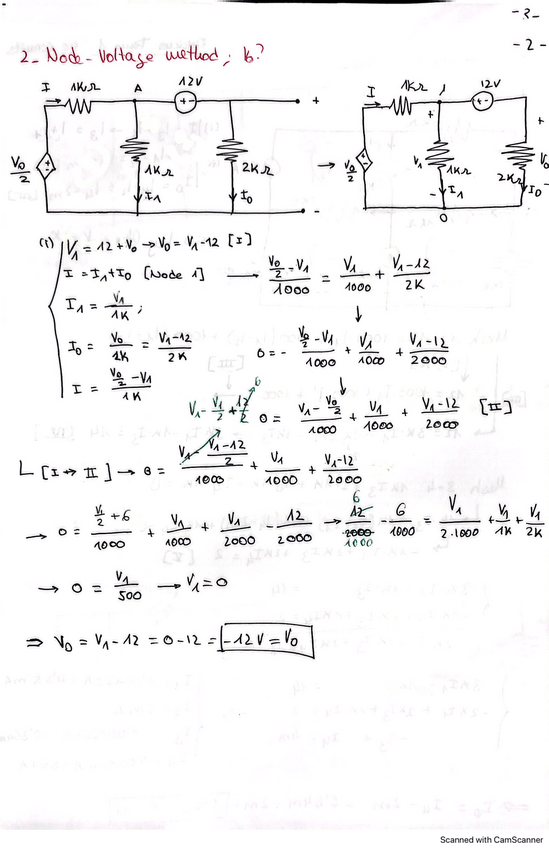 -3-
-2-
2_ Node-Voltage method; V₀?
I 1KΩ A 12V
+ -
+
V₀/2
1KΩ
2KΩ
I₁
I₀
-
→
I 1KΩ 1 12V
+ -
+
+
V₀/2
V₁
1KΩ
V₀
2KΩ
- I₁
I₀
-
0
(1) V₁ = 12 + V₀ → V₀ = V₁ - 12 [I]
I = I₁ + I₀ [Node 1] → (V₀/2 - V₁)/1000 = V₁/1000 + (V₁ - 12)/2K
I₁ = V₁/1K ;
↓
I₀ = V₀/2K = (V₁ - 12)/2K
0 = - (V₀/2 - V₁)/1000 + V₁/1000 + (V₁ - 12)/2000
I = (V₀/2 - V₁)/1K
↓
0 = (V₁ - V₀/2)/1000 + V₁/1000 + (V₁ - 12)/2000 [II]
V₁ - V₁/2 + 12/2 6
[I → II] → 0 = (V₁ - (V₁ - 12)/2)/1000 + V₁/1000 + (V₁ - 12)/2000
→ 0 = (V₁/2 + 6)/1000 + V₁/1000 + V₁/2000 - 12/2000 → 6 12/2000 1000 - 6/1000 = V₁/2·1000 + V₁/1K + V₁/2K
→ 0 = V₁/500 → V₁ = 0
⇒ V₀ = V₁ - 12 = 0 - 12 = -12V = V₀
Scanned with CamScanner